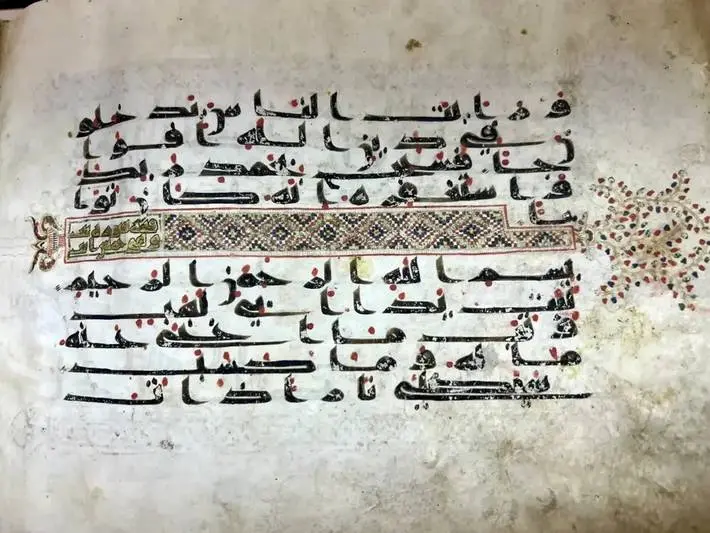 ورايت الناس يدخلو
ن في دين الله افوا
جا فسبح بحمد ربك
واستغفره انه كان توا
با
بسم الله الرحمن الرحيم
تبت يدا ابي لهب
وتب ما اغنى عنه
ماله وما كسب
سيصلى نارا ذات